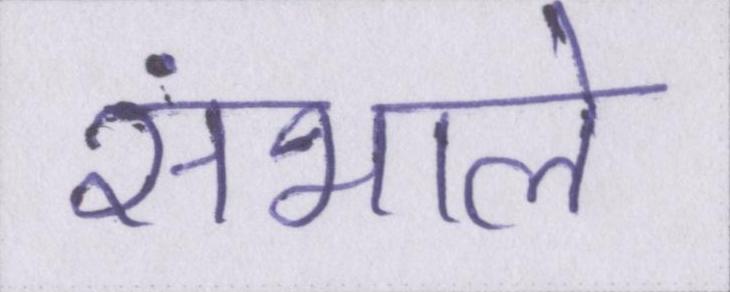 संभाले